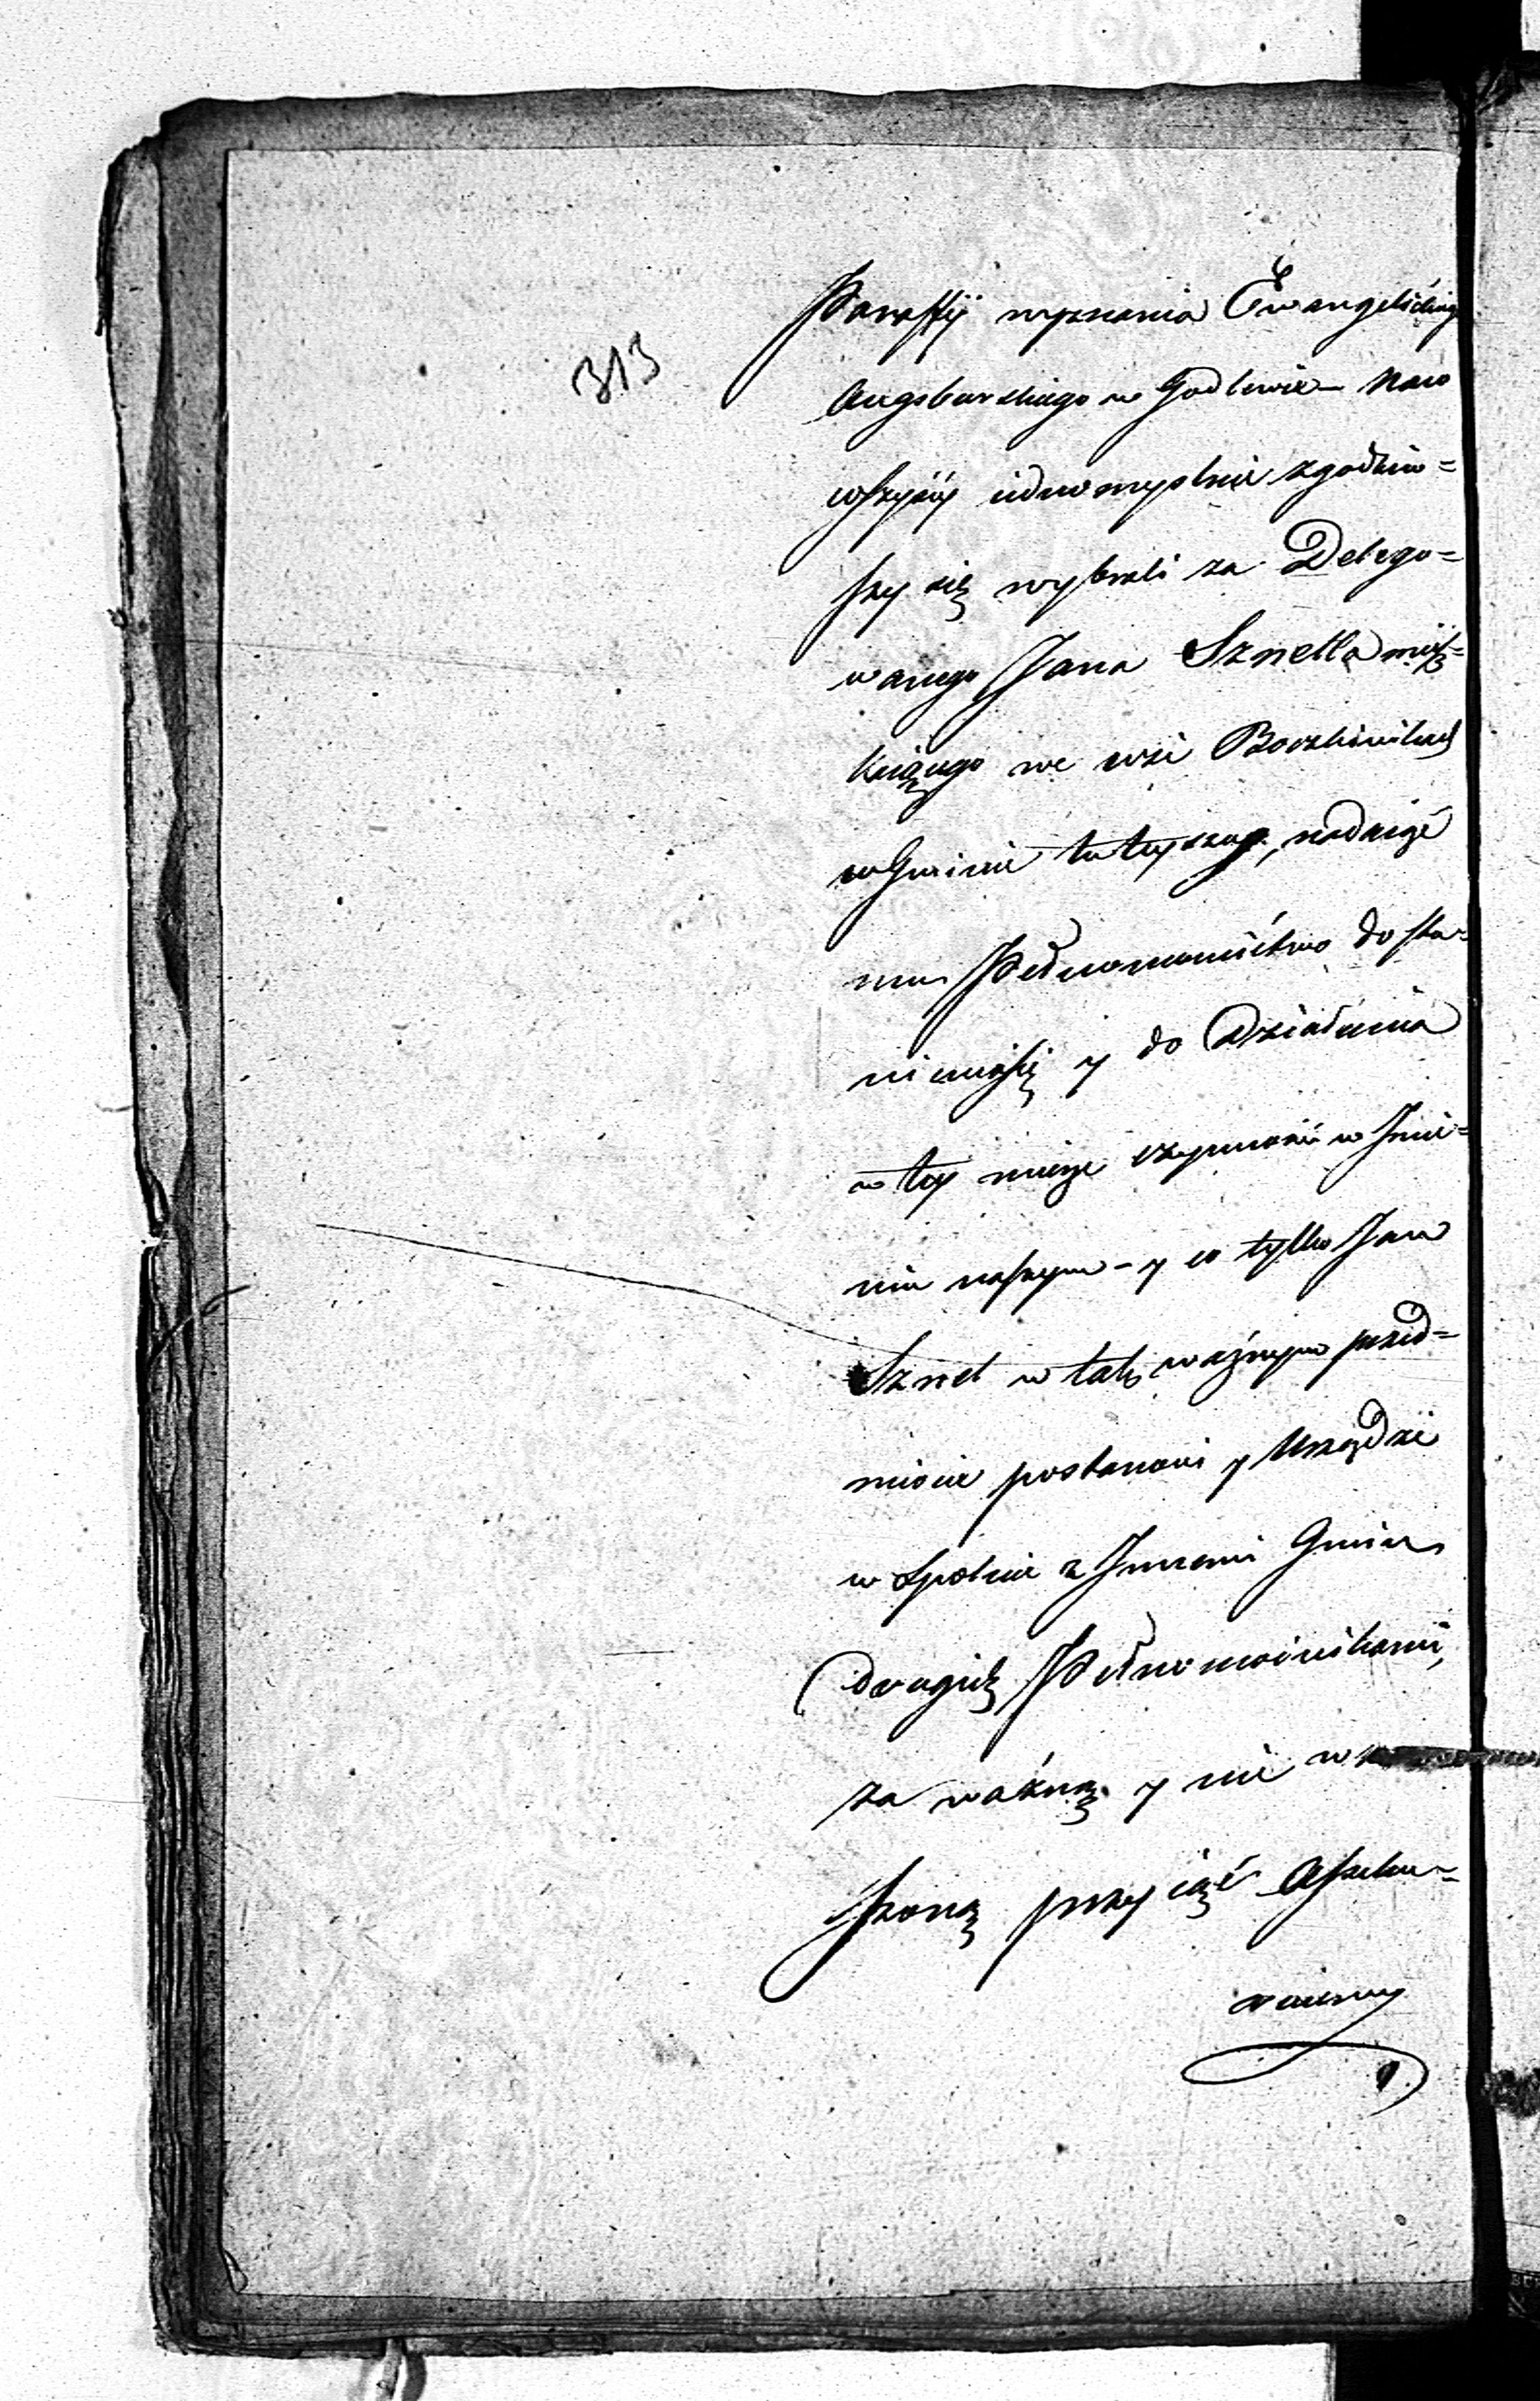 313
Paraffij wyznania Ewangelickiego
Augsburskiego w Godlewie
wszyscy iednomyslnie zgodziw=
szy się wybrali za Delego=
wanego Jana Sznella miesz=
kaiącego we wsi
w Gminie tuteyszey, nadaiąc
mu Pełnomocnictwo do sta=
nienia się y do Działania
w tey mierze czynność w Jmie=
niu naszym – y co tylko Jan
Sznel w tak ważnym przed=
miocie postanowi y Urządzi
w spolnie z Jnnemi Gmin
drugich Pełnomocnikami,
za ważną y nie
szoną przyiąć Assseku=
ruiemy